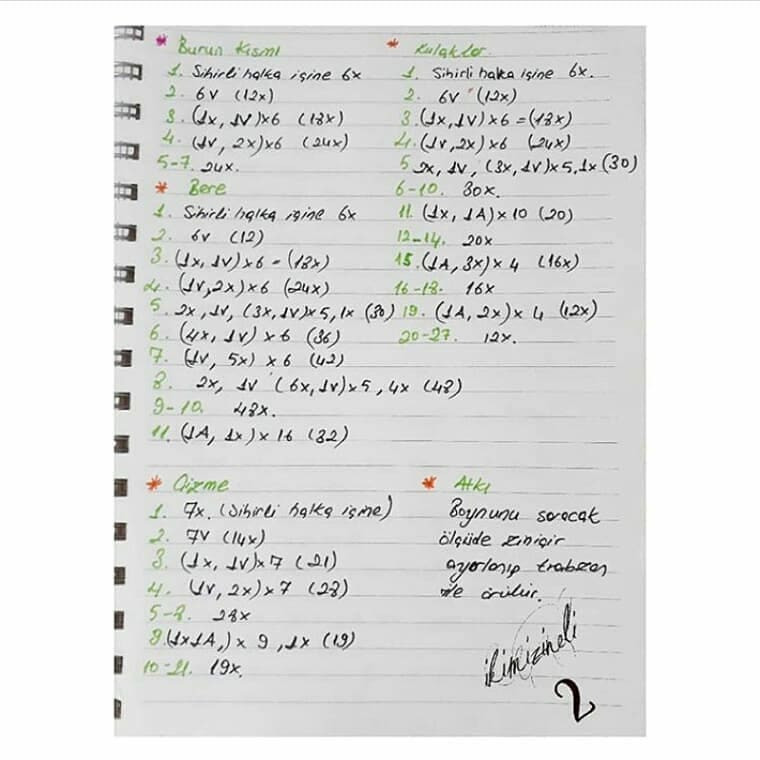 * Burun Kısmı
1. Sihirli halka içine 6x
2. 6V (12x)
3. (1x, 1V)x6 (18x)
4. (1V, 2x)x6 (24x)
5-7. 24x.
* Bere
1. Sihirli halka içine 6x
2. 6V (12)
3. (1x, 1V)x6 = (18x)
4. (1V, 2x)x6 (24x)
5. 2x, 1V, (3x, 1V)x5, 1x (30)
6. (4x, 1V) x6 (36)
7. (1V, 5x) x6 (42)
8. 2x, 1V (6x, 1V)x5, 4x (48)
9-10. 48x.
11. (1A, 1x) x 16 (32)
* Kulaklar
1. Sihirli halka içine 6x.
2. 6V (12x)
3. (1x, 1V)x6 = (18x)
4. (1V, 2x)x6 (24x)
5 2x, 1V, (3x, 1V)x5, 1x (30)
6-10. 30x.
11. (1x, 1A)x10 (20)
12-14. 20x
15. (1A, 3x)x 4 (16x)
16-18. 16x
19. (1A, 2x)x 4 (12x)
20-27. 12x.
* Çizme
1. 7x. (Sihirli halka içine)
2. 7V (14x)
3. (1x, 1V)x7 (21)
4. (1V, 2x)x7 (28)
5-8. 28x
9. (1x1A,)x 9, 1x (19)
10-21. 19x.
* Atkı
Boynunu saracak
ölçüde zincir
ayarlanıp trabzan
ile örülür.
ikimizineli
2